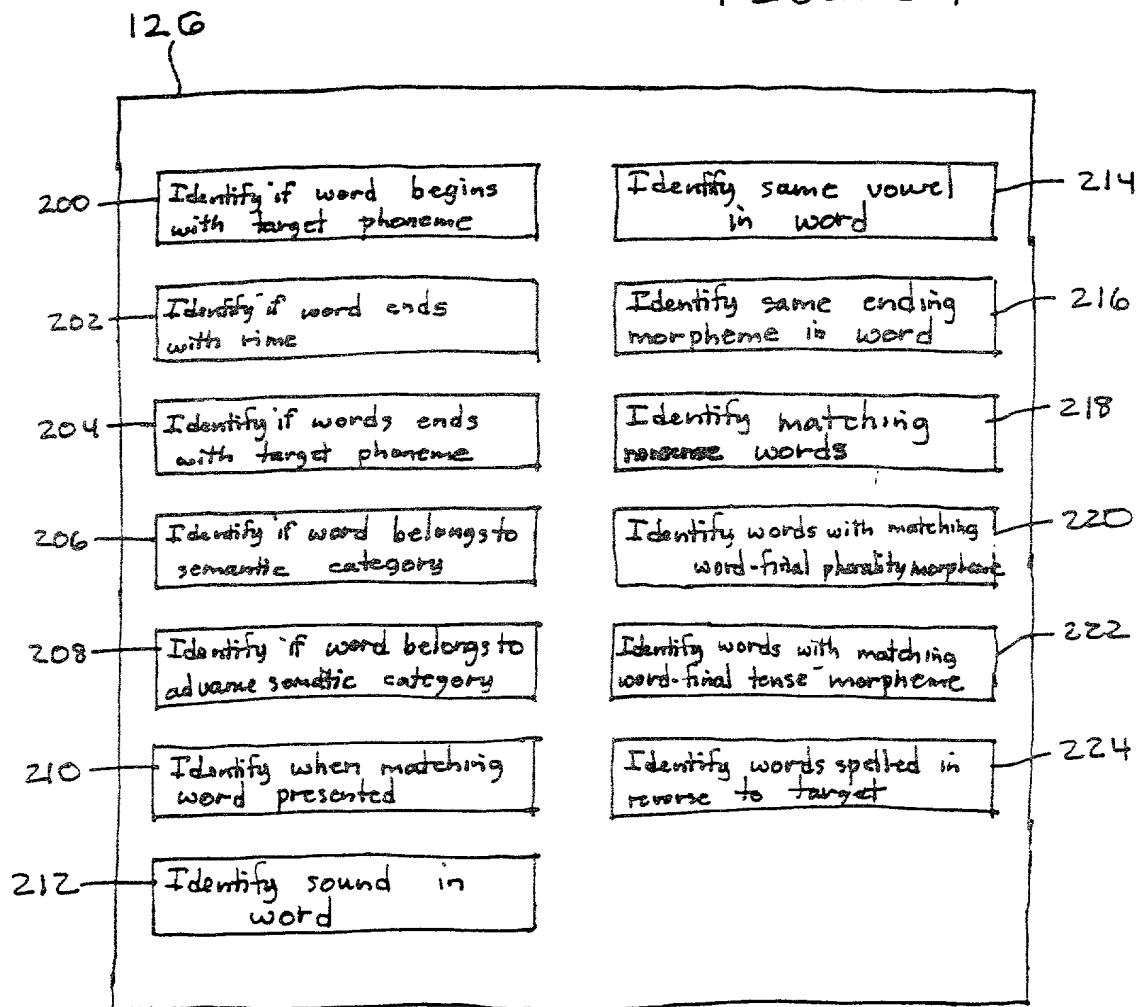 126
200
Identify if word begins
with target phoneme
202
Identify if word ends
with rime
204
Identify if words ends
with target phoneme
206
Identify if word belongs to
semantic category
208
Identify if word belongs to
advance semantic category
210
Identify when matching
word presented
212
Identify sound in
word
Identify same vowel
in word
214
Identify same ending
morpheme in word
216
Identify matching
nonsense words
218
Identify words with matching
word-final plurality morpheme
220
Identify words with matching
word-final tense morpheme
222
Identify words spelled in
reverse to target
224